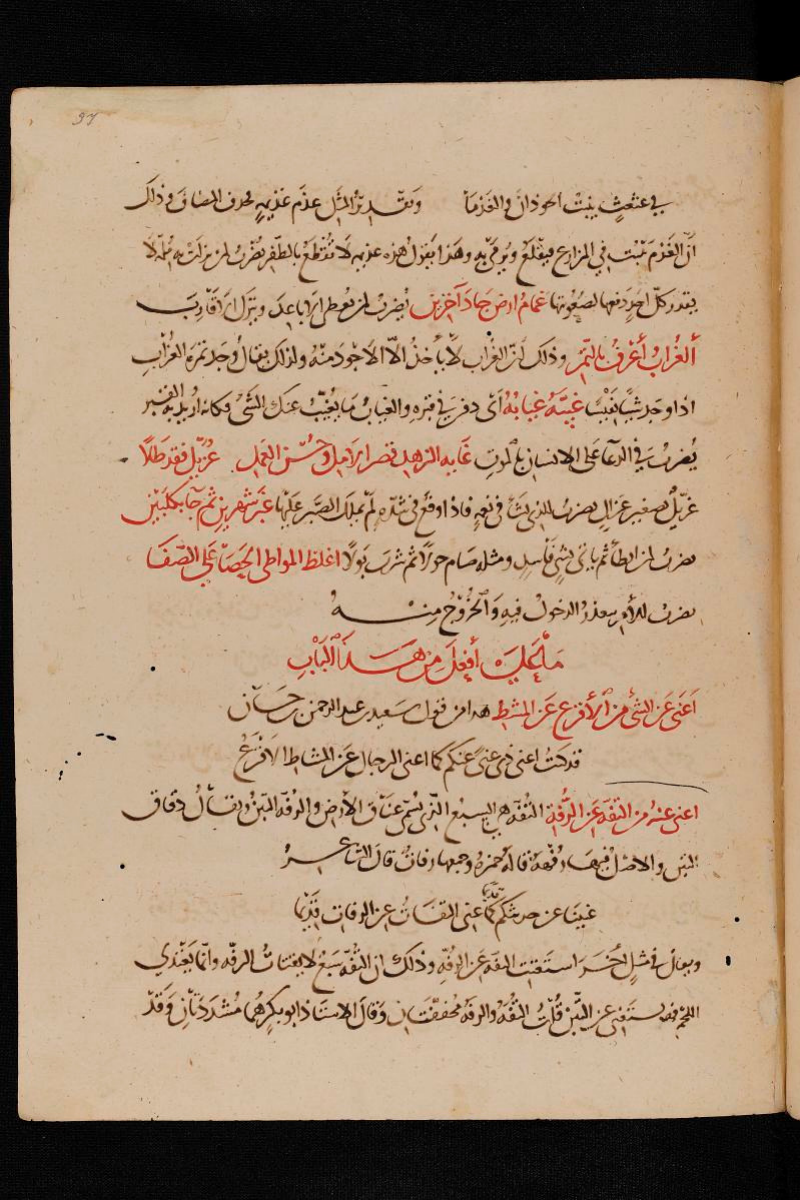 97
في عثعث ينبت الحوذان والغذما وتقدير المثل غذم غذيمة لحذف المضاف وذلك
أنّ الغذم ينبت في المزارع فيقلع ويرمى به وهذا يقول هذه غذيمه لا تقتطع بالظفر يضرب لمن نزلت به ملمة لا
يقدر كل احد دفعها لصعوبتها غمام ارض جاد آخرين يضرب لمن يعطى الاباعد ويترك الاقارب
ألغراب أعرف بالتمر وذلك لان الغراب لا يأخذ الا الاجود منه ولذلك يقال وجد تمرة الغراب
اذا وجد شيا نفيسا غيبه غيابه أى دفن في قبره والغياب ما يغيب عنك الشئ وكانه اريد به القبر
يضرب في الدعا على الانسان بالموت غاية الزهد قصر الامل وحسن العمل غزيل فقد طلا
غزيل تصغير غزال يضرب للذى نشأ فى نعمه فاذا وقع فى شدة لم يملك الصبر عليها غبر شهرين ثم جآ بكلبين
يضرب لمن ابطأ ثم ياتى بشئ فاسد ومثله صام حولا ثم شرب بولا اغلظ المواطئ الحصا على الصفا
يضرب للأمر يتعذر الدخول فيه والخروج منه
ما على أفعل من هذا الباب
أغنى عن الشئ من الأقرع عن المشط هذا من قول سعيد بن عبد الرحمن بن حسان
قد كنت اغنى ذى غنى عنكم كما اغنى الرجال عن المشاط الاقرع
اغنى عنه من التفه عن الرفه التفه هى السبع الذى يسمى عناق الأرض والرفه التبن ويقال دقاق
التبن والاصل فيهما رفهة قاله حمزه وجمعها رفات قال الشاعر
غنينا عن حديثكم قديما كما غنى التفات عن الرفات
ويقال فى مثل آخر استغنت التفه عن الرفه وذلك ان التفه سبع لا يقتات الرفه وانما يغتذى
اللحم فهو يستغنى عن التبن قلت التفه والرفه مخففتان وقال الاستاذ ابو بكر هما مشددتان وقد